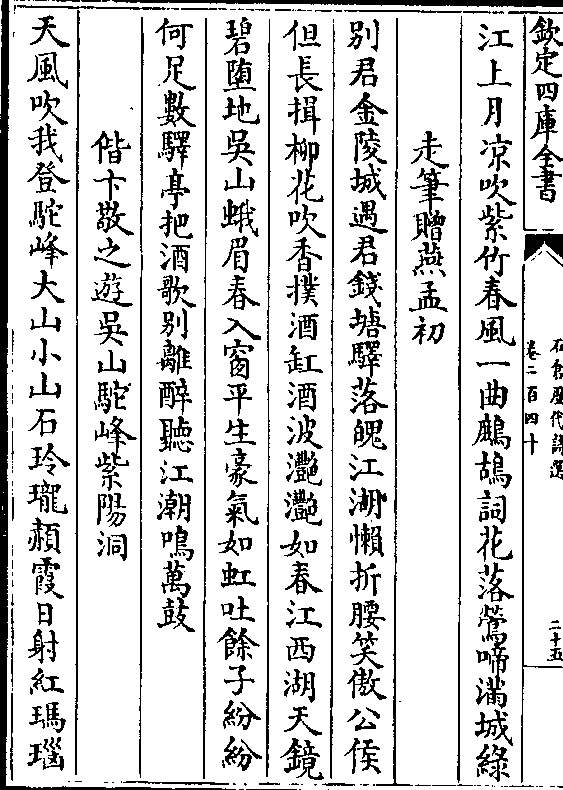 欽定四庫全書
石倉歷代詩選
卷二百四十
二十五
江上月涼吹紫竹春風一曲鷓鴣詞花落鶯啼滿城綠
走筆贈燕孟初
別君金陵城遇君錢塘驛落魄江湖懶折腰笑傲公侯
但長揖柳花吹香撲酒缸酒波灧灧如春江西湖天鏡
碧墮地吳山蛾眉春入窗平生豪氣如虹吐餘子紛紛
何足數驛亭把酒歌別離醉聽江潮鳴萬鼓
偕卞敬之遊吳山駝峰紫陽洞
天風吹我登駝峰大山小山石玲瓏赬霞日射紅瑪瑙